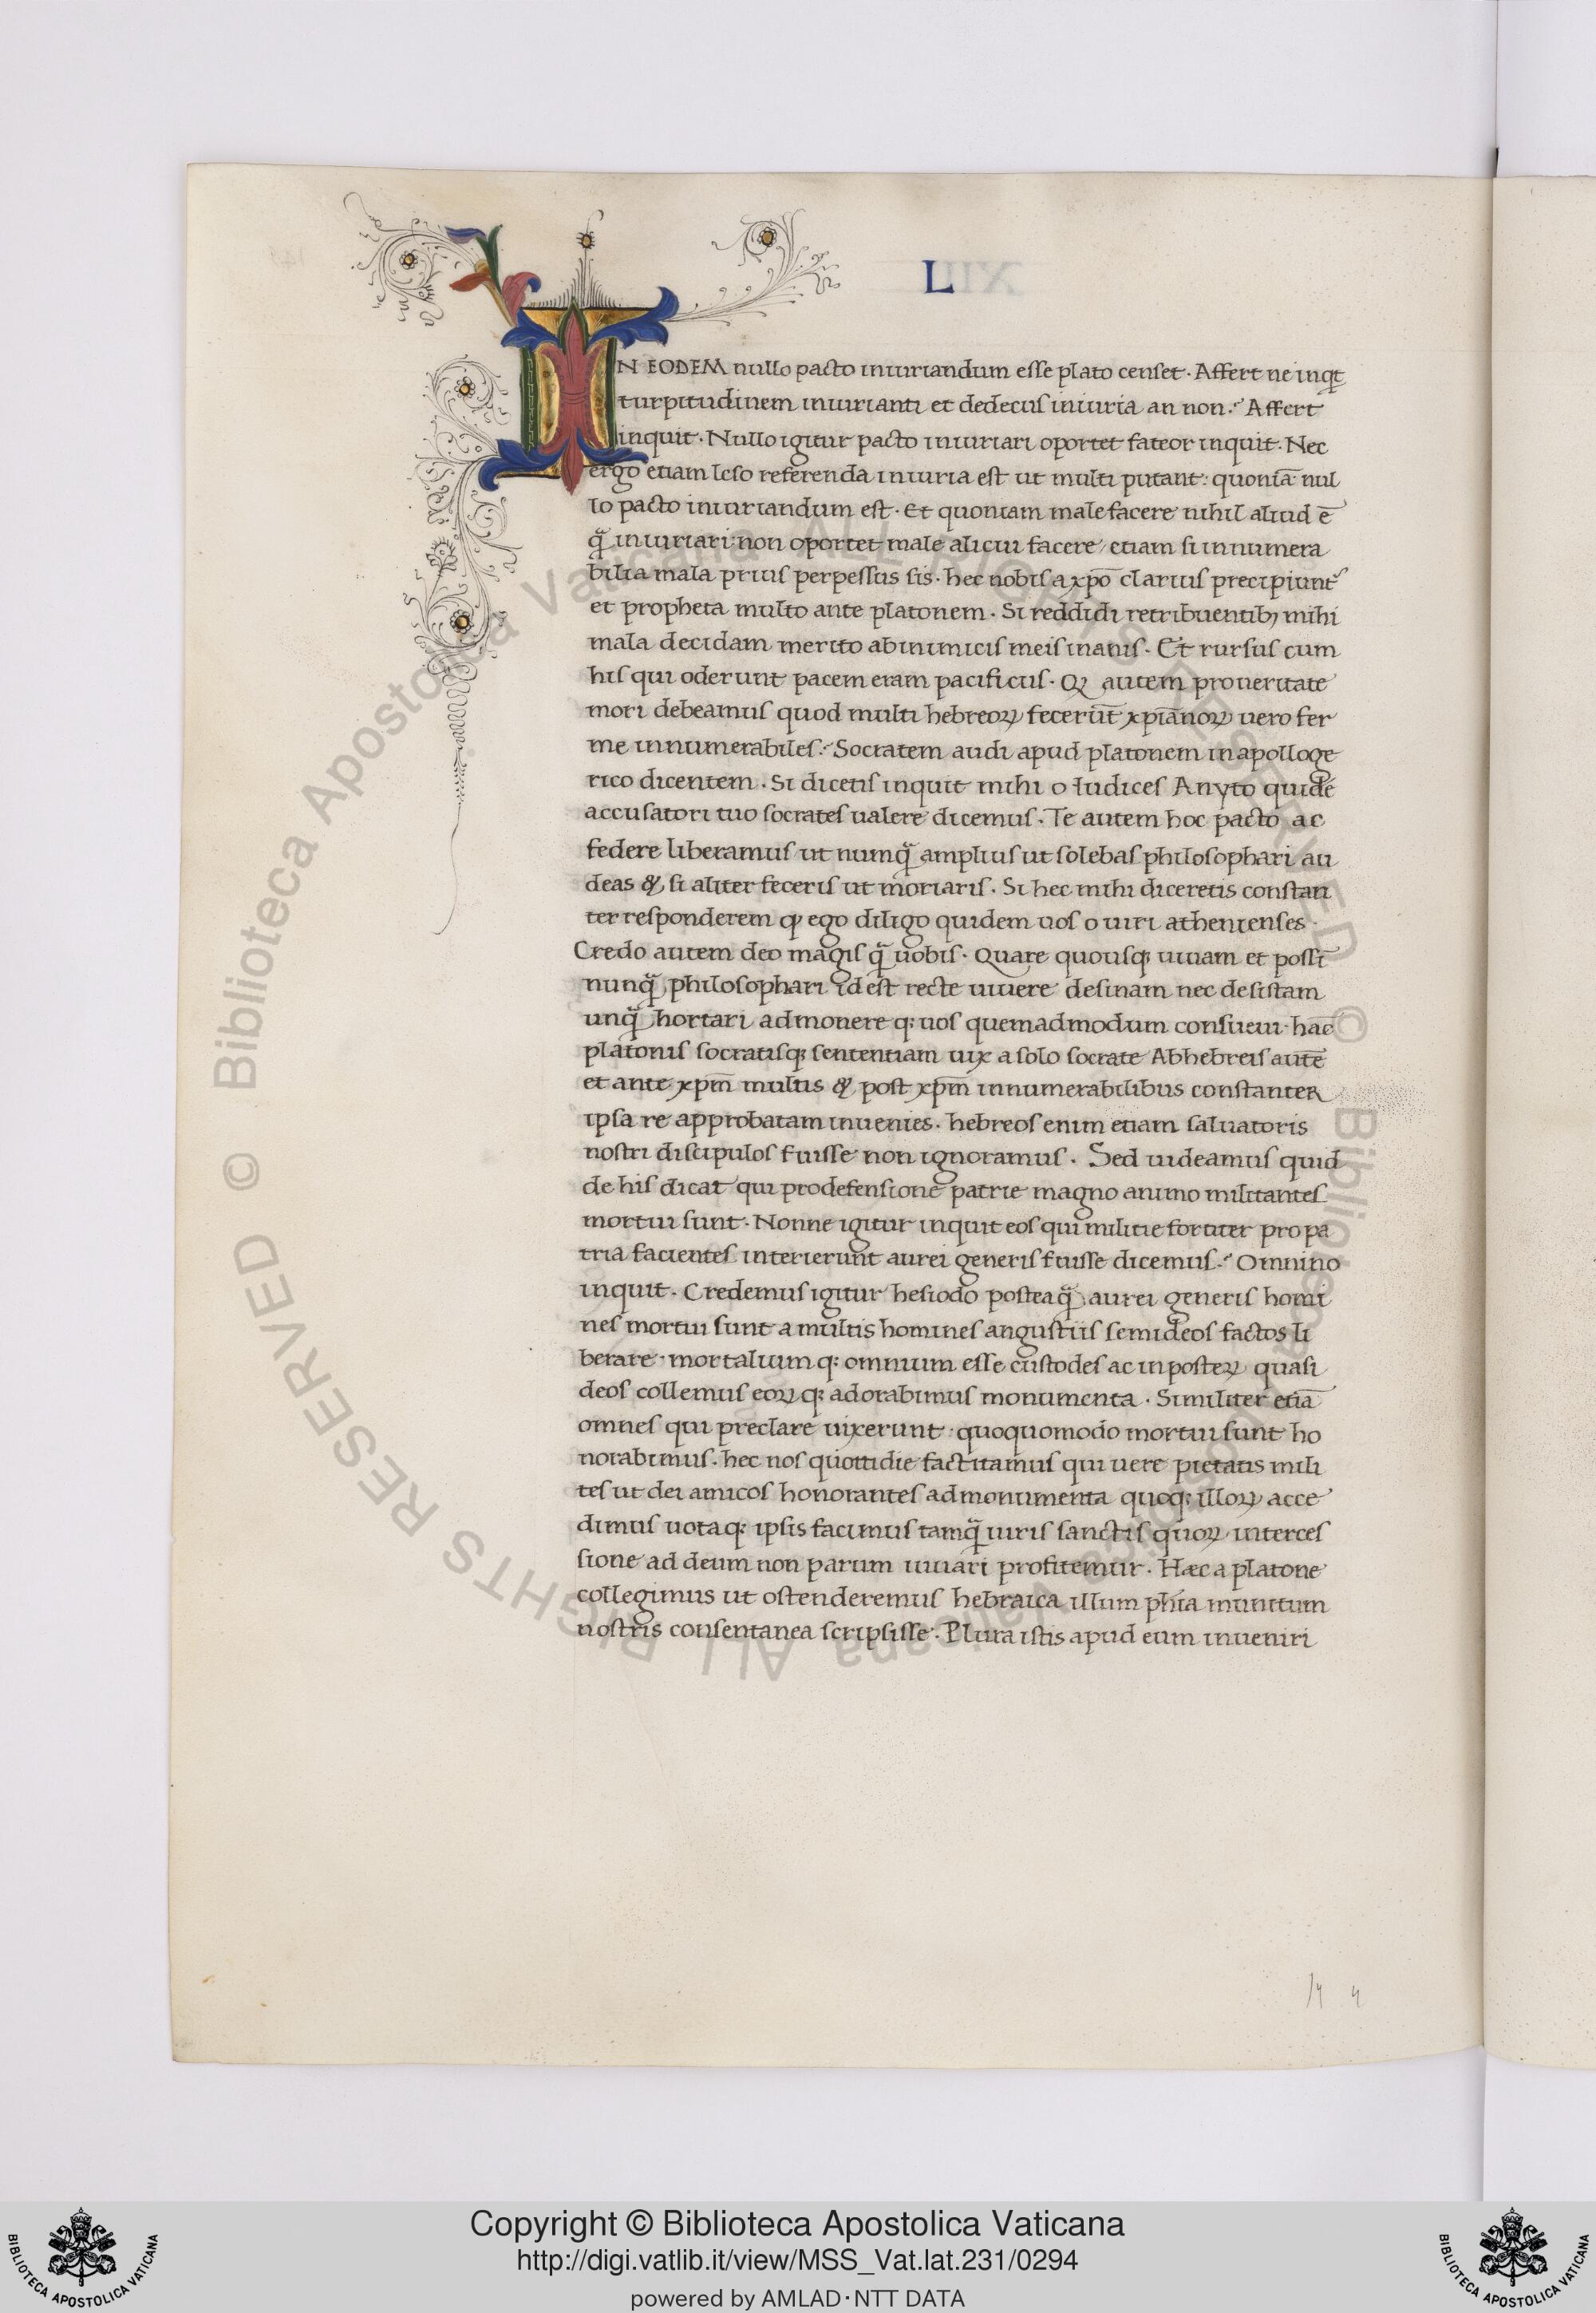 L
IN EODEM nullo pacto iniuriandum esse plato censet. Affert ne inqt
turpitudinem iniurianti et dedecus iniuria an non? Affert
inquit. Nullo igitur pacto iniuriari oportet fateor inquit. Nec
ergo etiam leso referenda iniuria est ut multi putant: quoniā nul
lo pacto iniuriandum est. Et quoniam male facere nihil aliud ē
q̃ iniuriari: non oportet male alicui facere, etiam si innumera
bilia mala prius perpessus sis. hec nobis a xp̄o clarius precipiunt᷑
et propheta multo ante platonem. Si reddidi retribuentibꝫ mihi
mala decidam merito ab inimicis meis inanis. Et rursus cum
his qui oderunt pacem eram pacificus. Qꝫ autem pro ueritate
mori debeamus quod multi hebreoꝝ fecerūt xp̄ianoꝝ uero fer
me innumerabiles? Socratem audi apud platonem in apolloge
tico dicentem. Si dicetis inquit mihi o Iudices Anyto quidē
accusatori tuo socrates ualere dicemus. Te autem hoc pacto ac
federe liberamus ut numq̃ amplius ut solebas philosophari au
deas & si aliter feceris ut moriaris. Si hec mihi diceretis constan
ter responderem ꝙ ego diligo quidem uos o uiri athenienses.
Credo autem deo magis q̃ uobis. Quare quousqꝫ uiuam et possī
nunq̃ philosophari id est recte uiuere desinam nec desistam
unq̃ hortari admonere qꝫ uos quemadmodum consueui. hāc
platonis socratisqꝫ sententiam uix a solo socrate Ab hebreis autē
et ante xp̄m multis & post xp̄m innumerabilibus constanter
ipsa re approbatam inuenies. hebreos enim etiam saluatoris
nostri discipulos fuisse non ignoramus. Sed uideamus quid
de his dicat qui pro defensione patrie magno animo militantes
mortui sunt. Nonne igitur inquit eos qui militie fortiter pro pa
tria facientes interierunt aurei generis fuisse dicemus? Omnino
inquit. Credemus igitur hesiodo postea q̃ aurei generis homi
nes mortui sunt a multis homines angustiis semideos factos li
berare. mortalium qꝫ omnium esse custodes ac in posteꝝ quasi
deos collemus eoꝝ qꝫ adorabimus monumenta. Similiter etiā
omnes qui preclare uixerunt quoquomodo mortui sunt ho
norabimus. hec nos quottidie factitamus qui uere pietatis mili
tes ut dei amicos honorantes ad monumenta quoqꝫ illoꝝ acce
dimus uotaqꝫ ipsis facimus tamq̃ uiris sanctis quoꝝ interces
sione ad deum non parum iuuari profitemur. Hæc a platone
collegimus ut ostenderemus hebraica illum ph̄ia munitum
nostris consentanea scripsisse. Plura istis apud eum inueniri
© Biblioteca Apostolica Vaticana ALL RIGHTS RESERVED
© Biblioteca Apostolica Vaticana ALL RIGHTS RESERVED
Copyright © Biblioteca Apostolica Vaticana
http://digi.vatlib.it/view/MSS_Vat.lat.231/0294
powered by AMLAD·NTT DATA
BIBLIOTECA APOSTOLICA VATICANA
BIBLIOTECA APOSTOLICA VATICANA